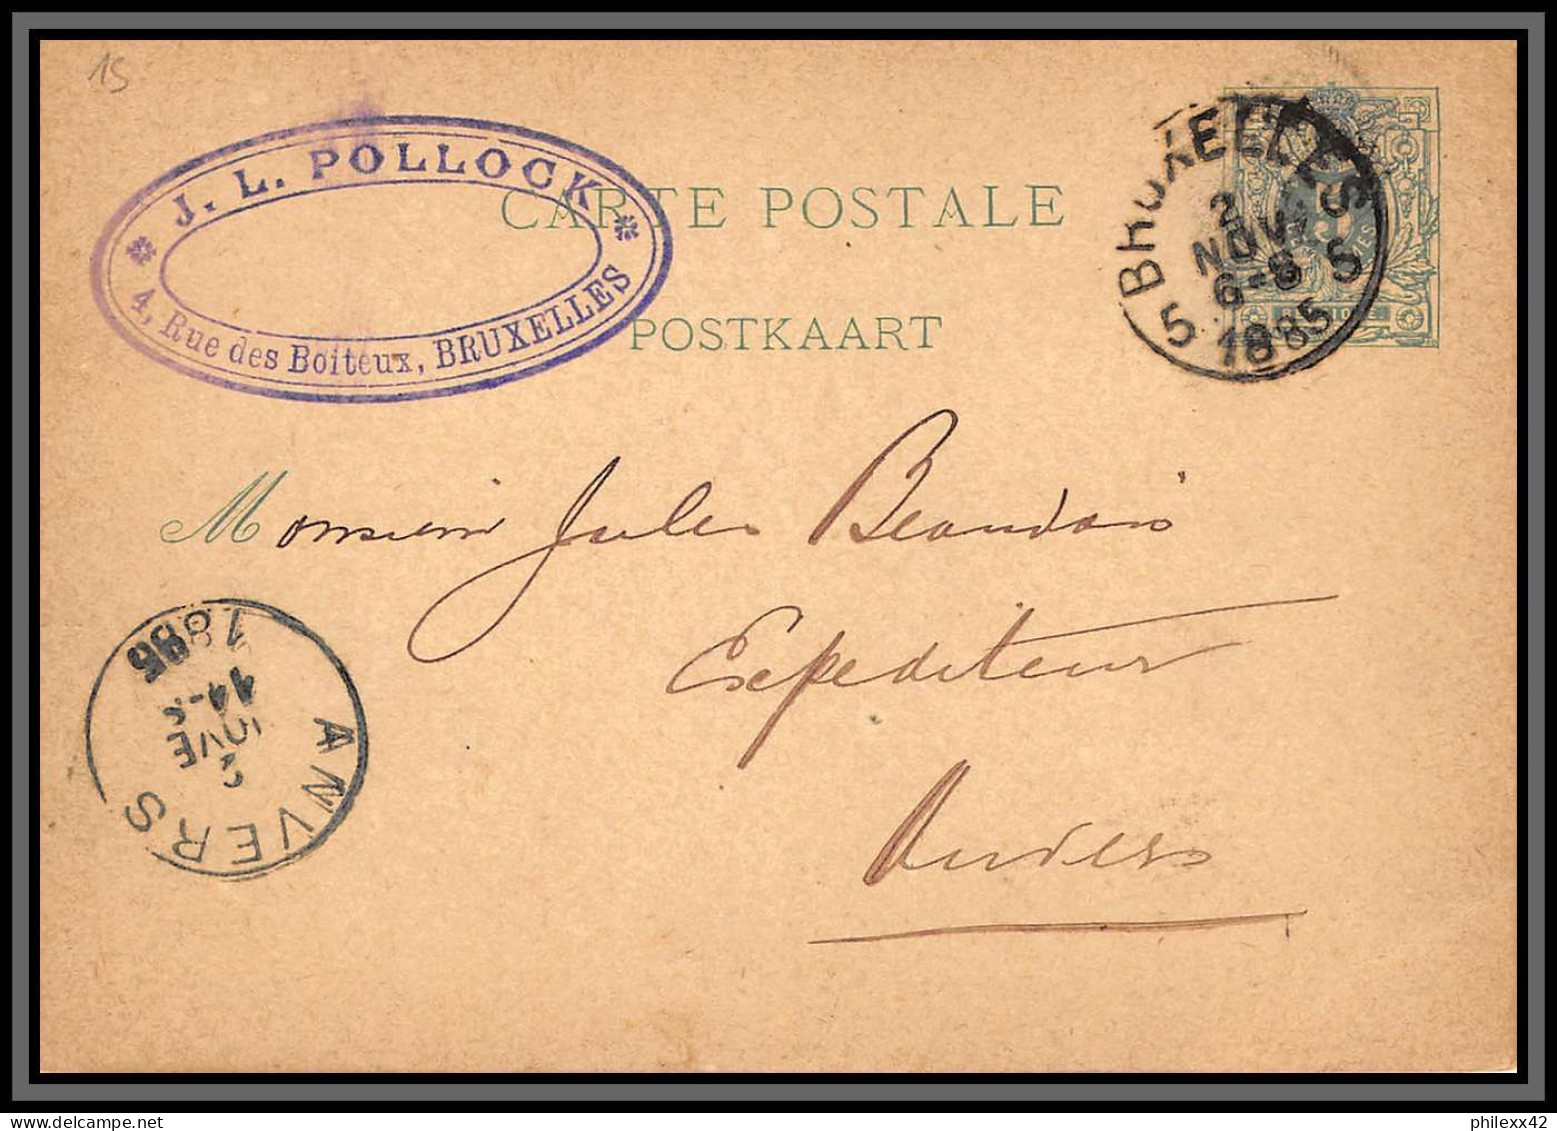 15
J. L. POLLOCK
4, Rue des Boiteux, BRUXELLES
CARTE POSTALE
POSTKAART
BRUXELLES
2
NOV.
6-8
1885
5 5
Monsieur Jules Beaudais
Expediteur
Anvers
ANVERS
2
NOVE
1885
philexx42